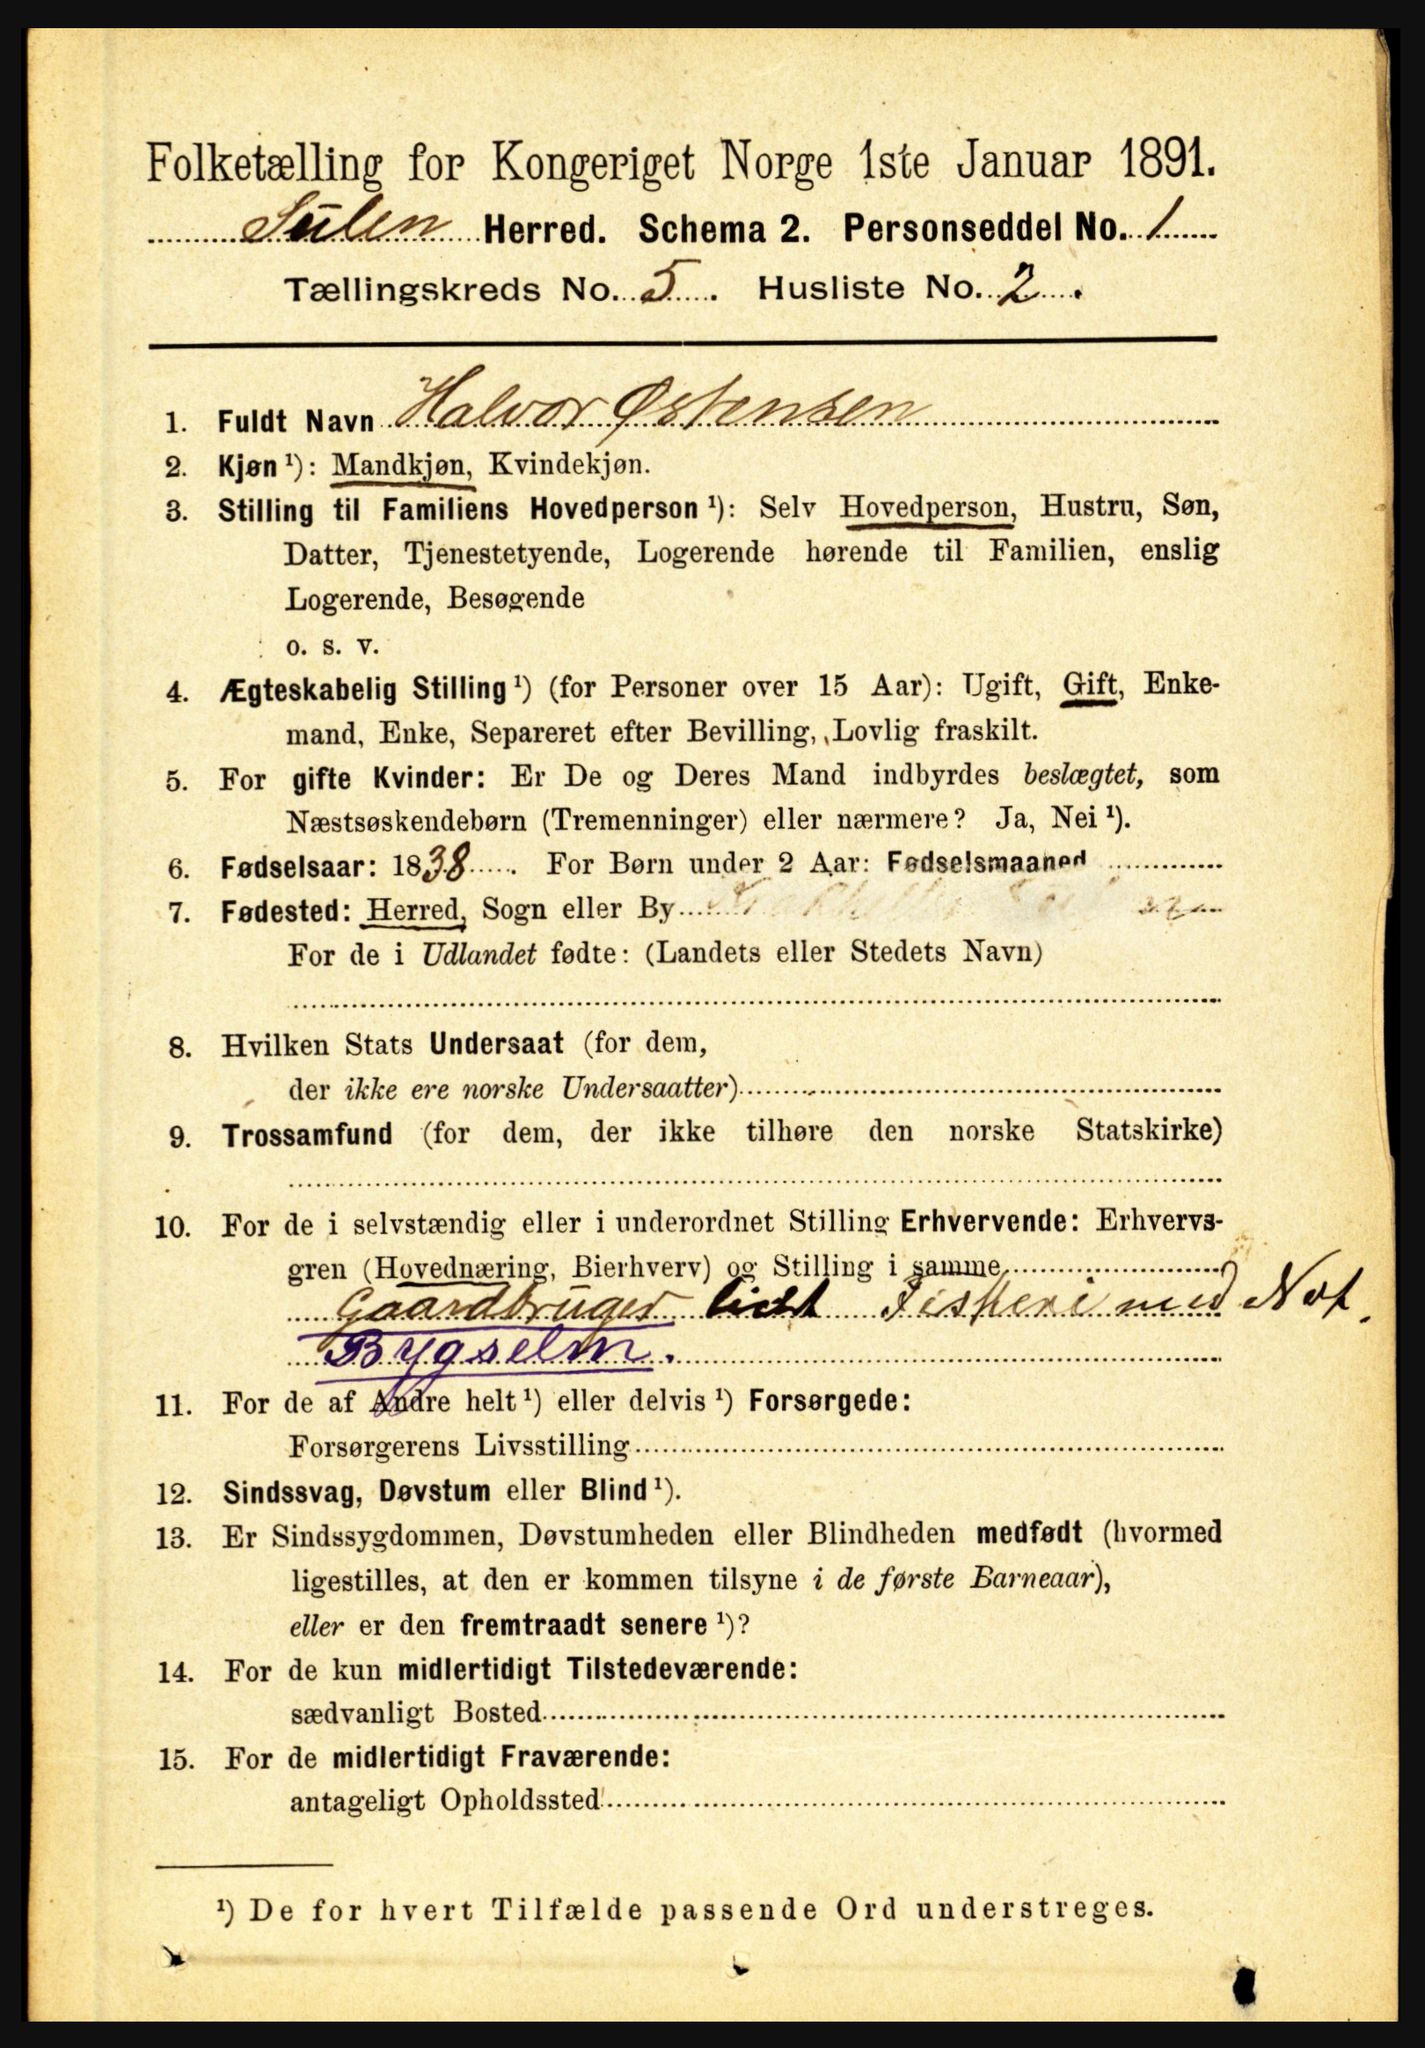 Folketælling for Kongeriget Norge 1ste Januar 1891.
Sulen Herred. Schema 2. Personseddel No. 1
Tællingskreds No. 5. Husliste No. 2.
1. Fuldt Navn Halvor Østensen
2. Kjøn ¹): Mandkjøn, Kvindekjøn.
3. Stilling til Familiens Hovedperson ¹): Selv Hovedperson, Hustru, Søn,
Datter, Tjenestetyende, Logerende hørende til Familien, enslig
Logerende, Besøgende
o. s. v.
4. Ægteskabelig Stilling ¹) (for Personer over 15 Aar): Ugift, Gift, Enke-
mand, Enke, Separeret efter Bevilling, Lovlig fraskilt.
5. For gifte Kvinder: Er De og Deres Mand indbyrdes beslægtet, som
Næstsøskendebørn (Tremenninger) eller nærmere? Ja, Nei ¹).
6. Fødselsaar: 1838. For Børn under 2 Aar: Fødselsmaaned
7. Fødested: Herred, Sogn eller By
For de i Udlandet fødte: (Landets eller Stedets Navn)
8. Hvilken Stats Undersaat (for dem,
der ikke ere norske Undersaatter)
9. Trossamfund (for dem, der ikke tilhøre den norske Statskirke)
10. For de i selvstændig eller i underordnet Stilling Erhvervende: Erhvervs-
gren (Hovednæring, Bierhverv) og Stilling i samme
Gaardbruger lidt Fiskeri med Not.
Bygselm.
11. For de af Andre helt ¹) eller delvis ¹) Forsørgede:
Forsørgerens Livsstilling
12. Sindssvag, Døvstum eller Blind ¹).
13. Er Sindssygdommen, Døvstumheden eller Blindheden medfødt (hvormed
ligestilles, at den er kommen tilsyne i de første Barneaar),
eller er den fremtraadt senere ¹)?
14. For de kun midlertidigt Tilstedeværende:
sædvanligt Bosted
15. For de midlertidigt Fraværende:
antageligt Opholdssted
¹) De for hvert Tilfælde passende Ord understreges.